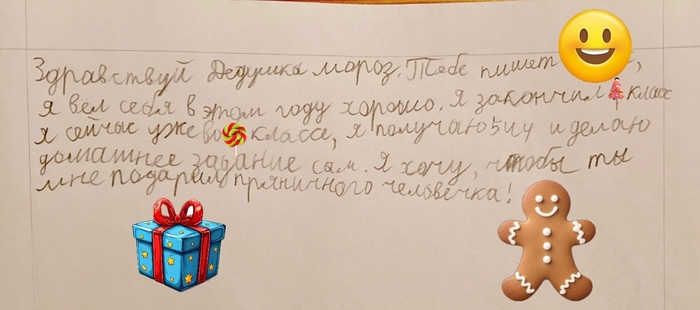 Здравствуй Дедушка мороз. Тебе пишет ,
я вёл себя в этом году хорошо. Я закончил класс
я сейчас уже во классе, я получаю 5 и 4 и делаю
домашнее задание сам. Я хочу, чтобы ты
мне подарил пряничного человечка!